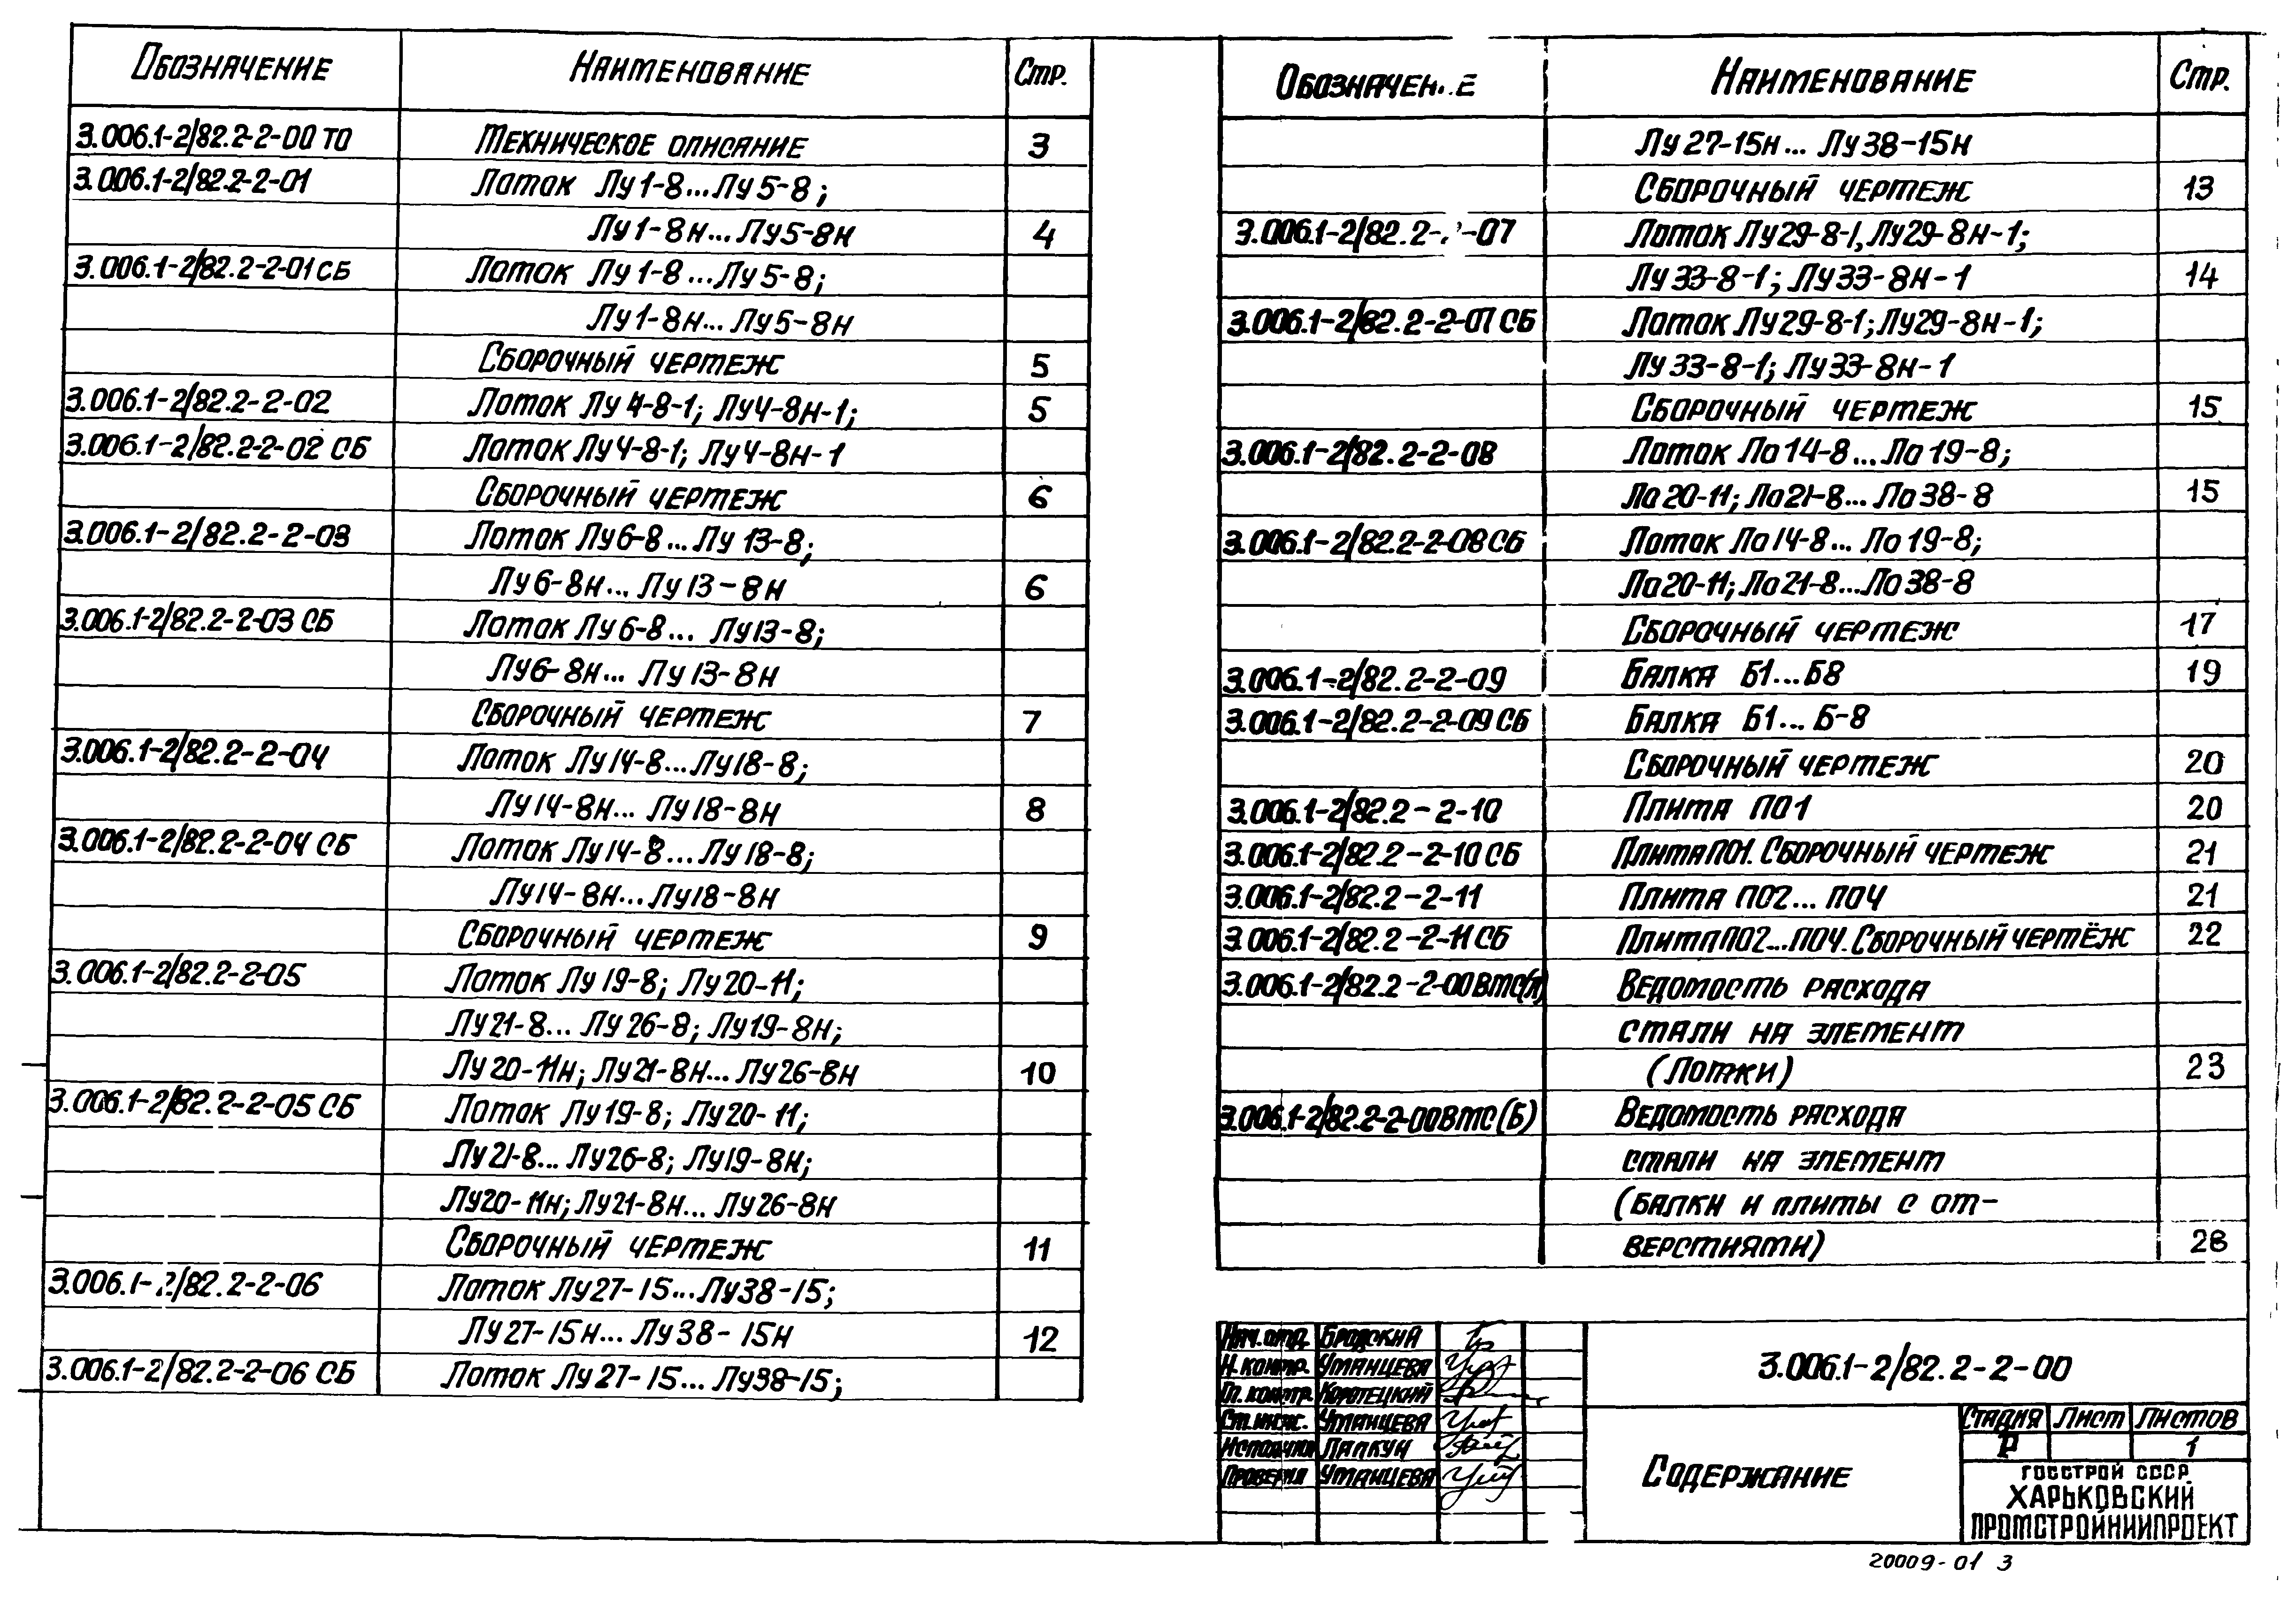 Обозначение Наименование Стр.
3.006.1-2/82.2-2-00 ТО Техническое описание 3
3.006.1-2/82.2-2-01 Лоток Лу1-8...Лу5-8;
Лу1-8н...Лу5-8н 4
3.006.1-2/82.2-2-01 СБ Лоток Лу1-8...Лу5-8;
Лу1-8н...Лу5-8н
Сборочный чертеж 5
3.006.1-2/82.2-2-02 Лоток Лу4-8-1; Лу4-8н-1; 5
3.006.1-2/82.2-2-02 СБ Лоток Лу4-8-1; Лу4-8н-1
Сборочный чертеж 6
3.006.1-2/82.2-2-03 Лоток Лу6-8...Лу13-8;
Лу6-8н...Лу13-8н 6
3.006.1-2/82.2-2-03 СБ Лоток Лу6-8...Лу13-8;
Лу6-8н...Лу13-8н
Сборочный чертеж 7
3.006.1-2/82.2-2-04 Лоток Лу14-8...Лу18-8;
Лу14-8н...Лу18-8н 8
3.006.1-2/82.2-2-04 СБ Лоток Лу14-8...Лу18-8;
Лу14-8н...Лу18-8н
Сборочный чертеж 9
3.006.1-2/82.2-2-05 Лоток Лу19-8; Лу20-11;
Лу21-8...Лу26-8; Лу19-8н;
Лу20-11н; Лу21-8н...Лу26-8н 10
3.006.1-2/82.2-2-05 СБ Лоток Лу19-8; Лу20-11;
Лу21-8...Лу26-8; Лу19-8н;
Лу20-11н; Лу21-8н...Лу26-8н
Сборочный чертеж 11
3.006.1-2/82.2-2-06 Лоток Лу27-15...Лу38-15;
Лу27-15н...Лу38-15н 12
3.006.1-2/82.2-2-06 СБ Лоток Лу27-15...Лу38-15;
Обозначение Наименование Стр.
Лу27-15н...Лу38-15н
Сборочный чертеж 13
3.006.1-2/82.2-2-07 Лоток Лу29-8-1, Лу29-8н-1;
Лу33-8-1; Лу33-8н-1 14
3.006.1-2/82.2-2-07 СБ Лоток Лу29-8-1; Лу29-8н-1;
Лу33-8-1; Лу33-8н-1
Сборочный чертеж 15
3.006.1-2/82.2-2-08 Лоток Ло14-8...Ло19-8;
Ло20-11; Ло21-8...Ло38-8 15
3.006.1-2/82.2-2-08 СБ Лоток Ло14-8...Ло19-8;
Ло20-11; Ло21-8...Ло38-8
Сборочный чертеж 17
3.006.1-2/82.2-2-09 Балка Б1...Б8 19
3.006.1-2/82.2-2-09 СБ Балка Б1...Б-8
Сборочный чертеж 20
3.006.1-2/82.2-2-10 Плита ПО1 20
3.006.1-2/82.2-2-10 СБ Плита ПО1. Сборочный чертеж 21
3.006.1-2/82.2-2-11 Плита ПО2...ПО4 21
3.006.1-2/82.2-2-11 СБ Плита ПО2...ПО4. Сборочный чертёж 22
3.006.1-2/82.2-2-00ВМС(Л) Ведомость расхода
стали на элемент
(Лотки) 23
3.006.1-2/82.2-2-00ВМС(Б) Ведомость расхода
стали на элемент
(балки и плиты с от-
верстиями) 28
Нач.отд. Бродский
Н.контр. Уманцева
Гл.констр. Коротецкий
Ст.инж. Уманцева
Исполнил Лапкун
Проверил Уманцева
3.006.1-2/82.2-2-00
Содержание
Стадия Лист Листов
Р 1
ГОССТРОЙ СССР
ХАРЬКОВСКИЙ
ПРОМСТРОЙНИИПРОЕКТ
20009-01 3